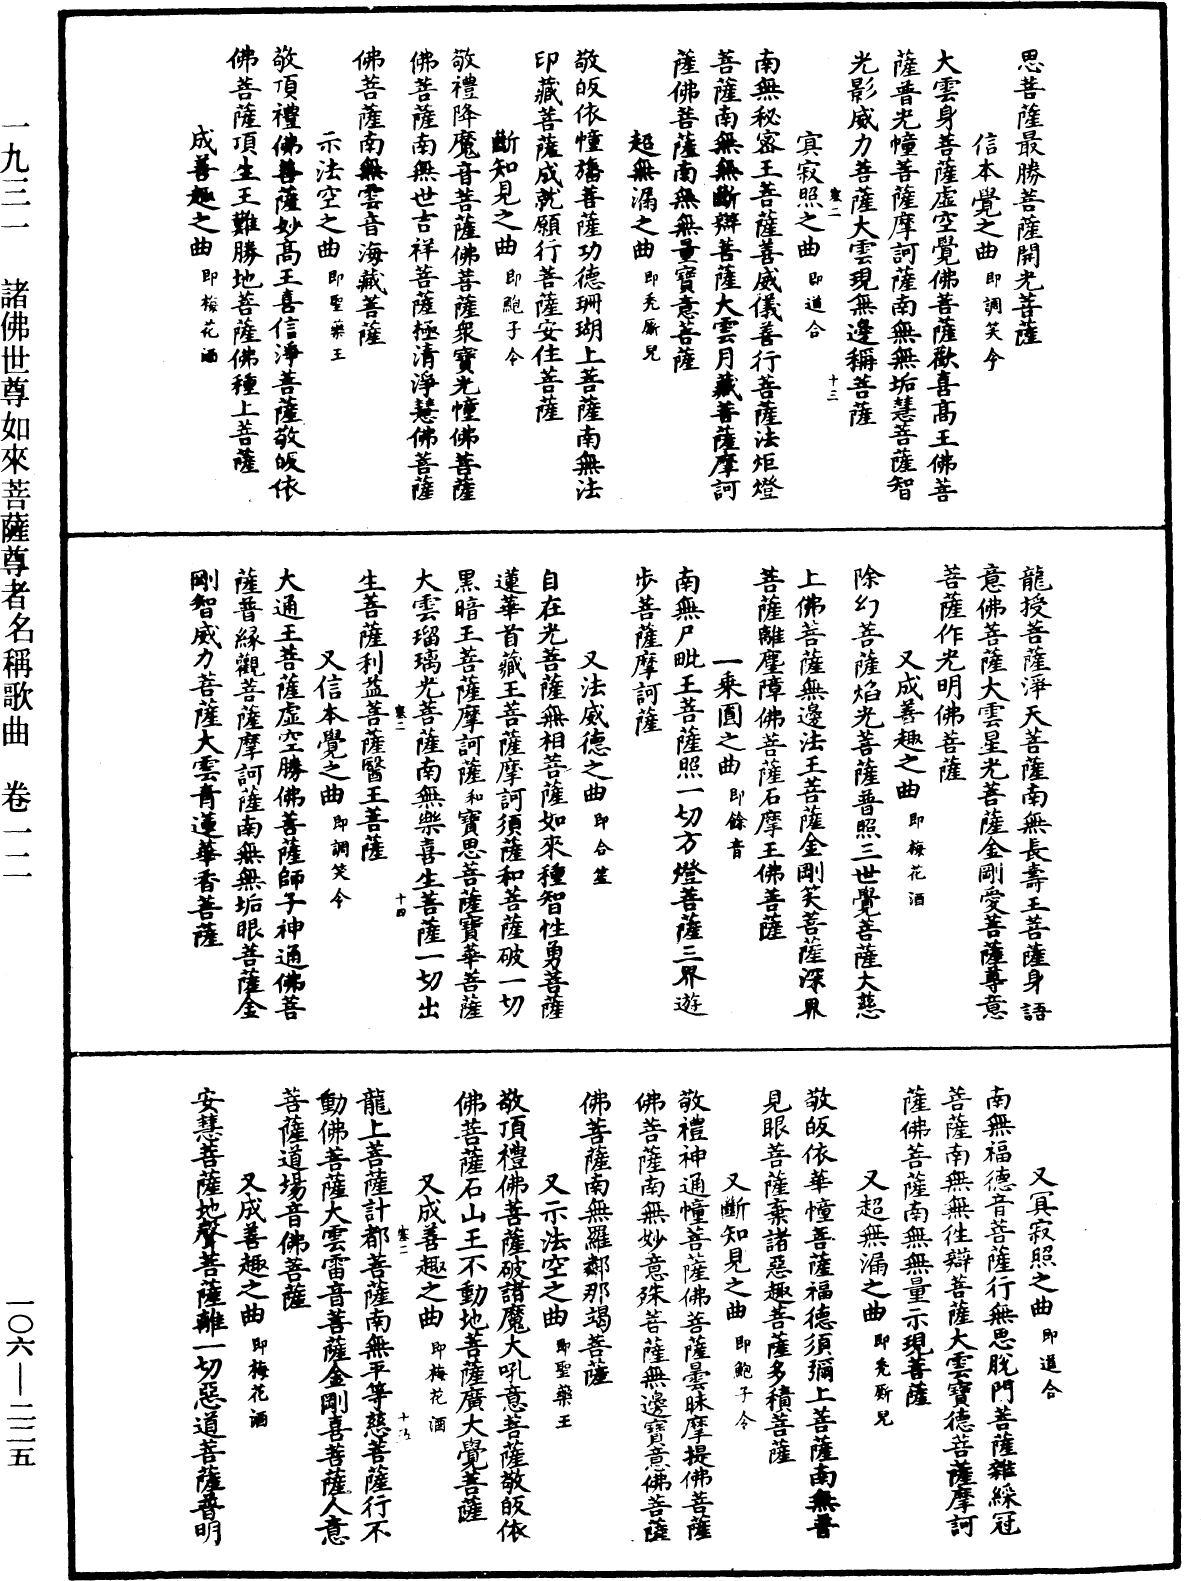 思菩薩最勝菩薩開光菩薩
信本覺之曲 即調笑令
大雲身菩薩虛空覺佛菩薩歡喜高王佛菩
薩普光幢菩薩摩訶薩南無無垢慧菩薩智
光影威力菩薩大雲現無邊稱菩薩
塞二 十三
寘寂照之曲 即道合
南無秘密王菩薩善威儀善行菩薩法炬燈
菩薩南無無斷辯菩薩大雲月藏菩薩摩訶
薩佛菩薩南無無量寶意菩薩
超無漏之曲 即禿厮兒
敬皈依幢旛菩薩功德珊瑚上菩薩南無法
印藏菩薩成就願行菩薩安住菩薩
斷知見之曲 即鮑子令
敬禮降魔音菩薩佛菩薩衆寶光幢佛菩薩
佛菩薩南無世吉祥菩薩極清淨慧佛菩薩
佛菩薩南無雲音海藏菩薩
示法空之曲 即聖藥王
敬頂禮佛菩薩妙高王喜信淨菩薩敬皈依
佛菩薩頂生王難勝地菩薩佛種上菩薩
成善趣之曲 即梅花酒
龍授菩薩淨天菩薩南無長壽王菩薩身語
意佛菩薩大雲星光菩薩金剛愛菩薩尊意
菩薩作光明佛菩薩
又成善趣之曲 即梅花酒
除幻菩薩焰光菩薩普照三世覺菩薩大慈
上佛菩薩無邊法王菩薩金剛笑菩薩深界
菩薩離塵障佛菩薩石摩王佛菩薩
一乘圓之曲 即餘音
南無尸毗王菩薩照一切方燈菩薩三界遊
步菩薩摩訶薩
又法威德之曲 即合笙
自在光菩薩無相菩薩如來種智性勇菩薩
蓮華首藏王菩薩摩訶須薩和菩薩破一切
黑暗王菩薩摩訶薩和寶思菩薩寶華菩薩
大雲瑠璃光菩薩南無樂喜生菩薩一切出
塞二 十四
生菩薩利益菩薩醫王菩薩
又信本覺之曲 即調笑令
大通王菩薩虛空勝佛菩薩師子神通佛菩
薩普緣觀菩薩摩訶薩南無無垢眼菩薩金
剛智威力菩薩大雲青蓮華香菩薩
又寘寂照之曲 即道合
南無福德音菩薩行無思脫門菩薩雜綵冠
菩薩南無無往辯菩薩大雲寶德菩薩摩訶
薩佛菩薩南無無量示現菩薩
又超無漏之曲 即禿厮兒
敬皈依華幢菩薩福德須彌上菩薩南無普
見眼菩薩棄諸惡趣菩薩多積菩薩
又斷知見之曲 即鮑子令
敬禮神通幢菩薩佛菩薩曇昧摩提佛菩薩
佛菩薩南無妙意殊菩薩無邊寶意佛菩薩
佛菩薩南無羅鄰那竭菩薩
又示法空之曲 即聖藥王
敬頂禮佛菩薩破諸魔大吼意菩薩敬皈依
佛菩薩石山王不動地菩薩廣大覺菩薩
又成善趣之曲 即梅花酒
塞二 十五
龍上菩薩計都菩薩南無平等慈菩薩行不
動佛菩薩大雲雷音菩薩金剛喜菩薩人意
菩薩道場音佛菩薩
又成善趣之曲 即梅花酒
安慧菩薩地聲菩薩離一切惡道菩薩普明
一九三一 諸佛世尊如來菩薩尊者名稱歌曲 卷一二
一〇六—二二五